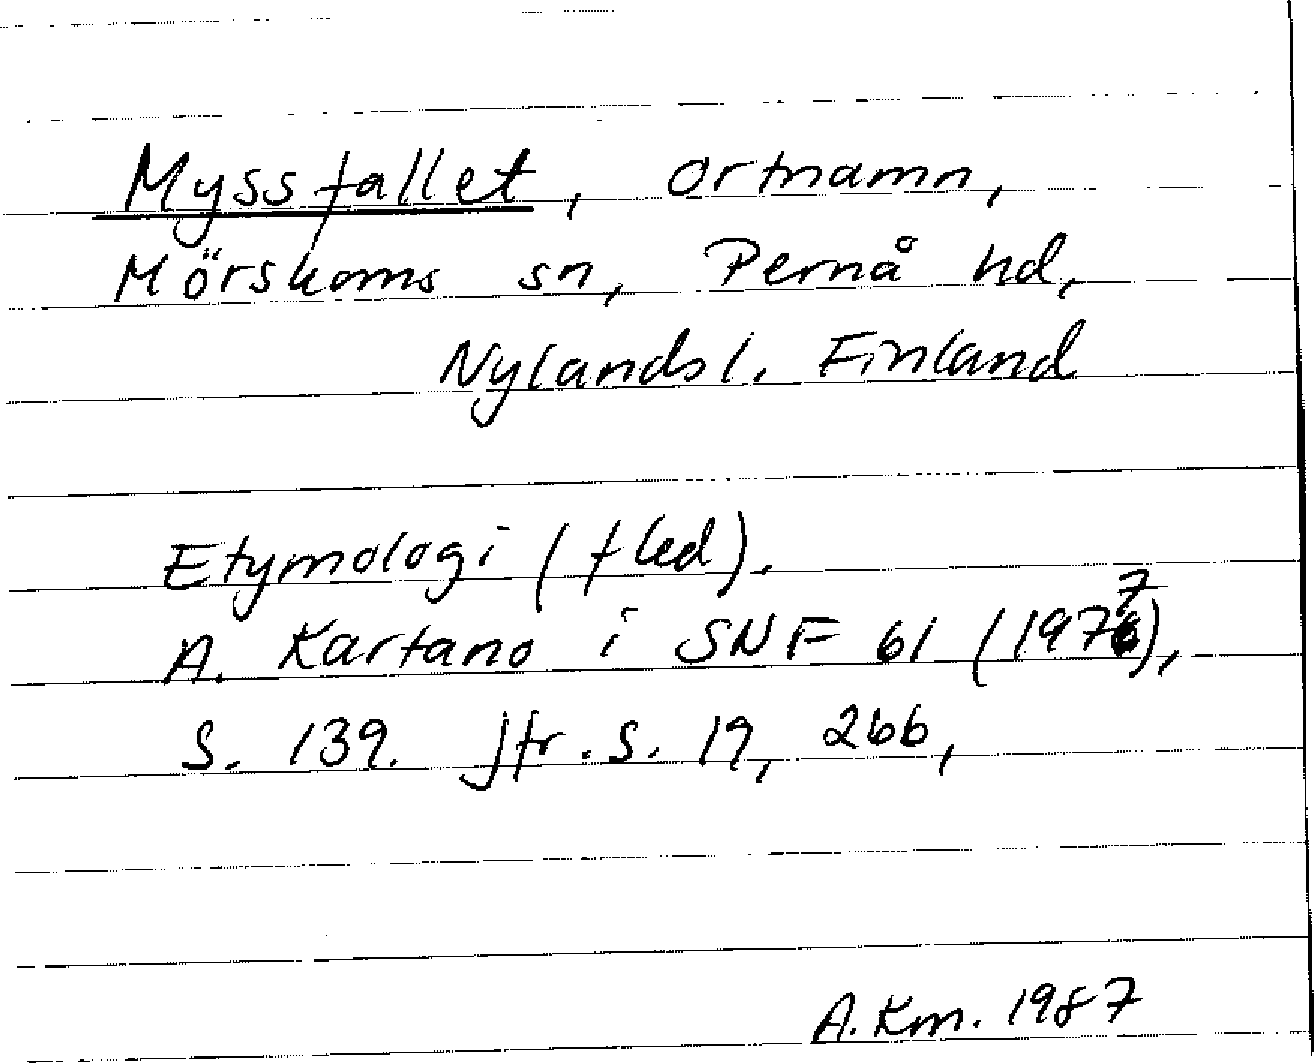 Myssfallet, ortnamn,
Mörskoms sn, Pernå hd,
Nylands l. Finland
Etymologi (fled).
A. Kartano i SNF 61 (1977),
s. 139. Jfr. s. 19, 266,
A. Km. 1987